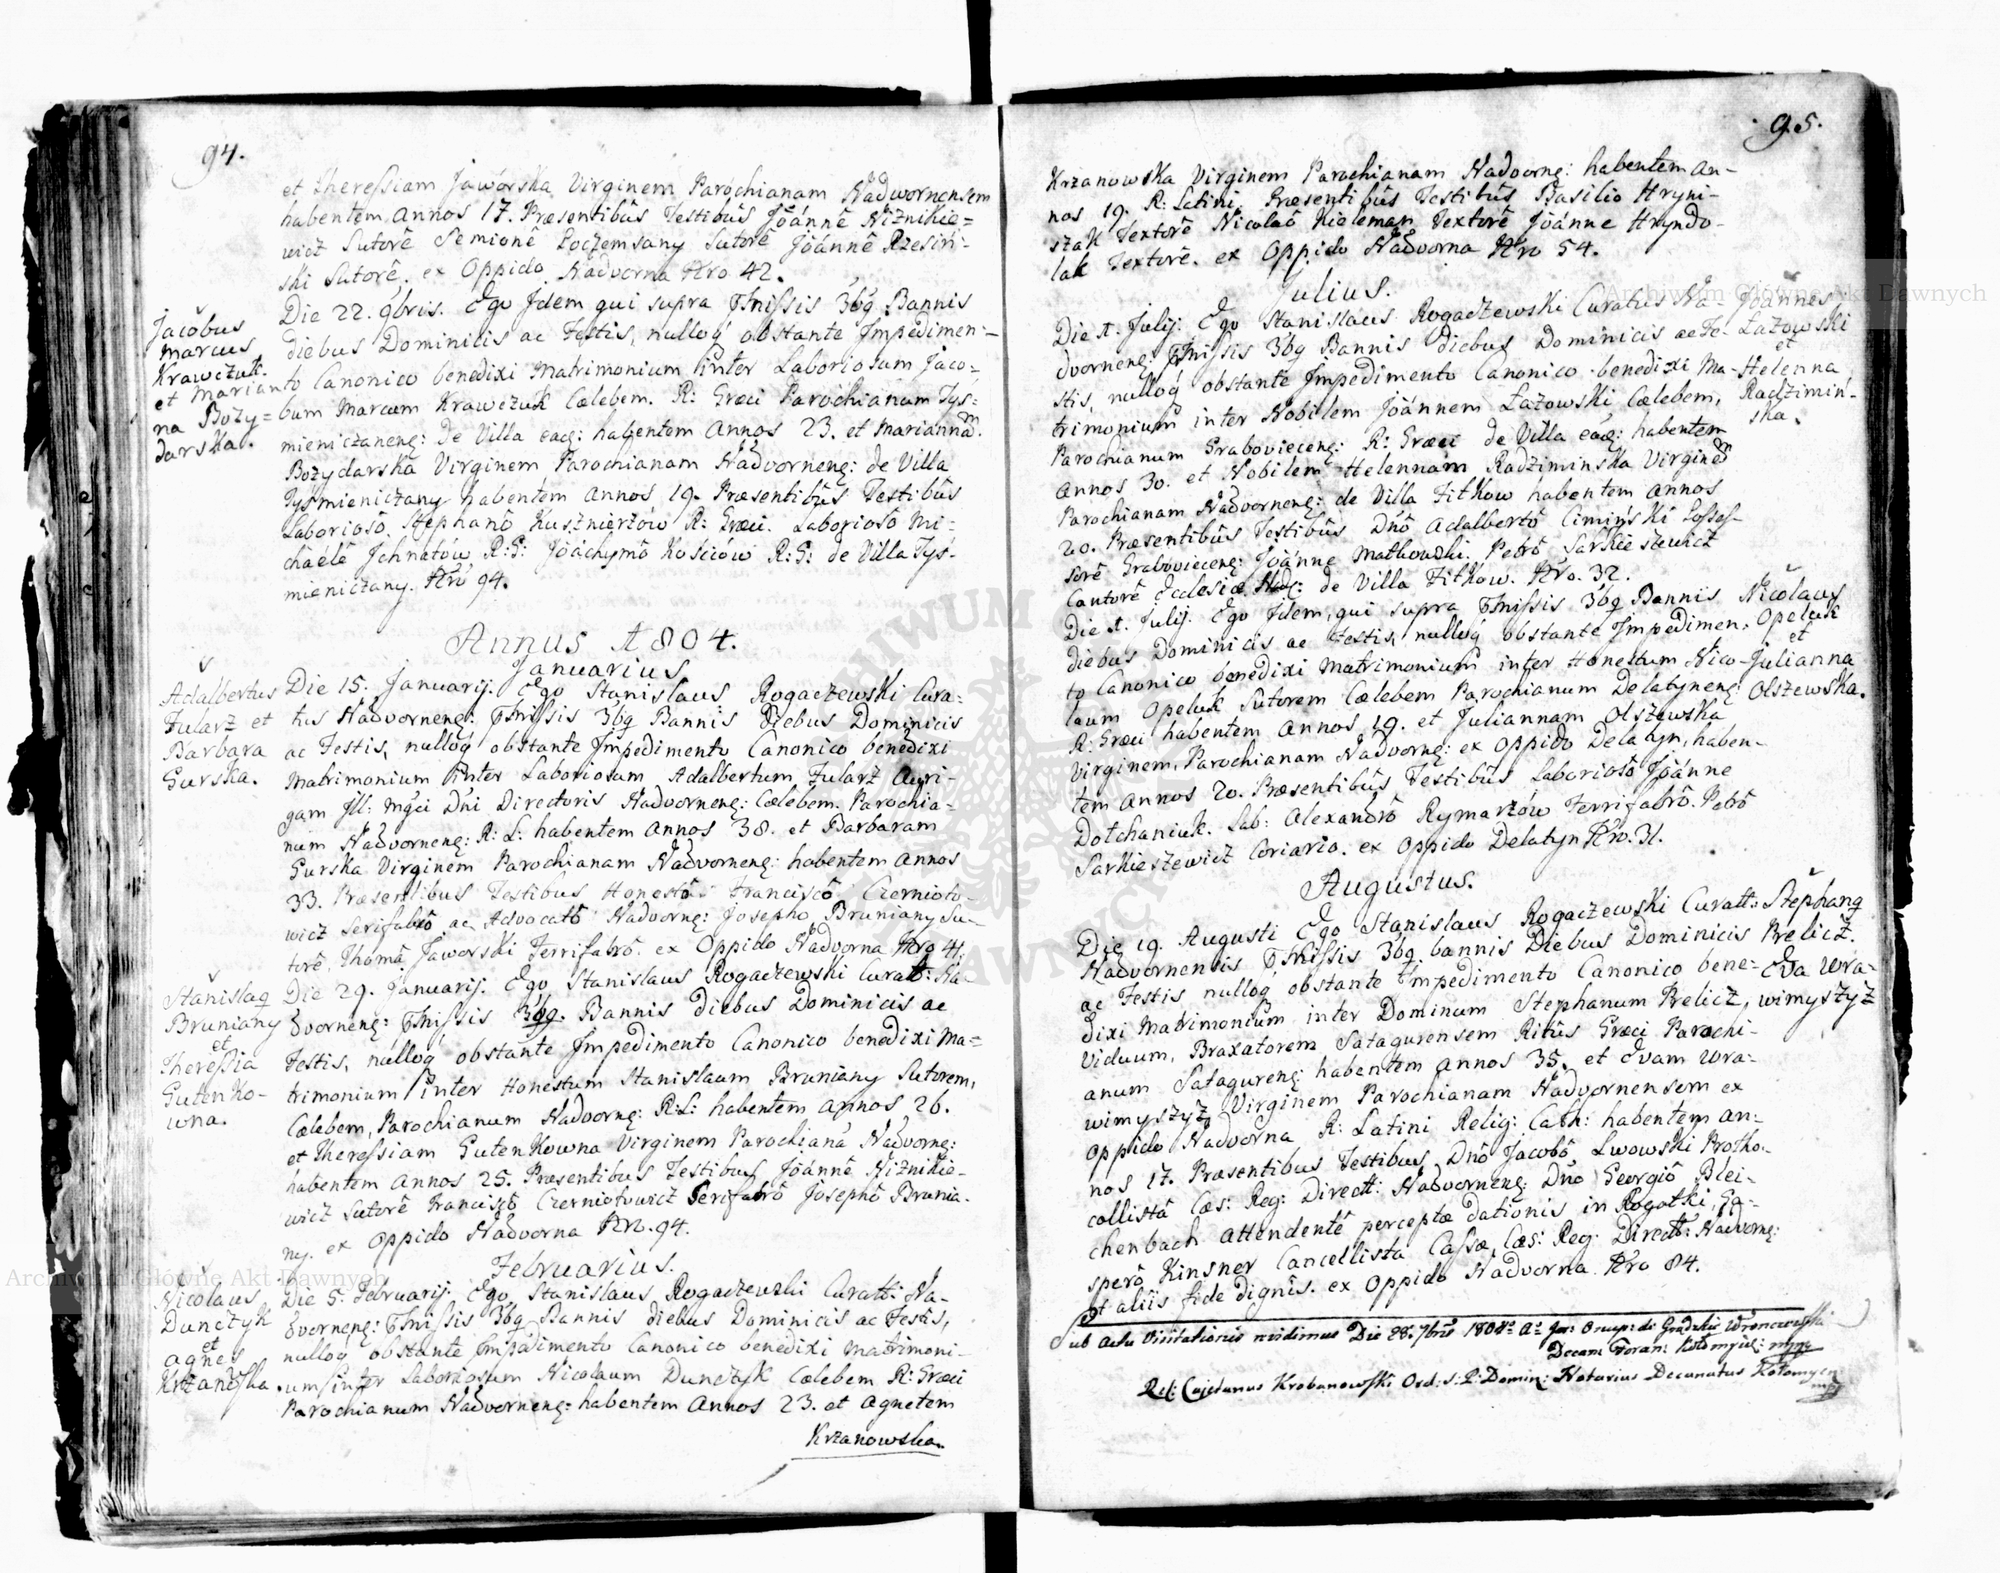 94.
et Theressiam Jaworska Virginem Parochianam Nadwornensem
habentem Annos 17. Præsentibûs Testibûs Jôánnê Niznikie=
wicz Sutorê Semionê Poczemsany Sutorê Jôánnê Rzesiń-
ski Sutorê. ex Oppido Nadvorna Nro 42.
Jacobus
Marcus
Krawczuk
et Marian
na Boży=
darska.
Die 22. 9bris. Ego Idem qui supra Bannis
diebus Dominicis ac Festis, nulloq obstante Impedimen-
to Canonico benedixi Matrimonium inter Laboriosum Jaco=
bum Marcum Krawczuk Cælebem. R: Græci Parochianum Tys=
mieniczanenę: de Villa eaę: habentem Annos 23. et Mariannam.
Bozydarska Virginem Parochianam Nadvornenę: de Villa
Tysmieniczany habentem Annos 19. Præsentibûs Testibûs
Laboriosô. Stephanô Kusznierzów R: Græci. Laboriosô Mi=
chaélê Jchnatów R:G: Jôáchymô Kościów R:G: de Villa Tys-
mieniczany. Nro 94.
Annus 1804.
Januarius
Adalbertus
Fularz et
Barbara
Gurska.
Die 15. Januarij. Ego Stanislaus Rogaczewski Cura=
tus Nadvornenę: 3bg Bannis Diebus Dominicis
ac Festis, nulloq obstante Impedimento Canonico benedixi
Matrimonium inter Laboriosum Adalbertum Fularz Auri-
gam Jll: Mgci Dni Directoris Nadvornenę: Cælebem. Parochia-
num Nadvornenę: R: L: habentem Annos 38. et Barbaram
Gurska Virginem Parochianam Nadvornenę: habentem Annos
33. Præsentibus Testibus Honestô Franciscô Czernioto-
wicz Serifabrô ac Advocatô Nadvornę: Josepho Bruniany Su-
torê, Thomâ Jaworski Ferrifabrô. ex Oppido Nadvorna Nro 41.
Stanislaq
Bruniany
et
Theressia
Gutenko-
wna.
Die 29. Januarij. Ego Stanislaus Rogaczewski Curatt: Na-
dvornenę: 3bg. Bannis diebus Dominicis ac
Festis, nulloq obstante Impedimento Canonico benedixi Ma=
trimonium inter Honestum Stanislaum Bruniany Sutorem,
Cælebem, Parochianum Nadvornę: R:L: habentem Annos 26.
et Theressiam Gutenkowna Virginem Parochianâ Nadvornę:
habentem Annos 25. Præsentibus Testibus Jôánnê Niznikie-
wicz Sutorê Franciscô Czerniotowicz Serifabrô Josephô Brunia-
ny. ex Oppido Nadvorna Nro. 94.
Februarius.
Nicolaus
Dunczyk
et
Agnes
Krzanowska.
Die 5. Februarij. Ego Stanislaus Rogaczewski Curatt: Na-
dvornenę: 3bg Bannis diebus Dominicis ac Festis,
nulloq obstante Impedimento Canonico benedixi Matrimoni-
um inter Laboriosum Nicolaum Dunczyk Cælebem R: Græci
Parochianum Nadvornenę: habentem Annos 23. et Agnetem
Krzanowska.
95.
Krzanowska Virginem Parochianam Nadvornę: habentem An-
nos 19. R: Latini. Præsentibûs Testibûs Basilio Hryni-
szak Textorê Nicolaô Kieleman Textorê Jôánne Hryndo-
lak Textorê. ex Oppido Nadvorna Nro 54.
Julius.
Joannes
Łazowski
et
Helenna
Radzimiń-
ska.
Die 1. Julij. Ego Stanislaus Rogaczewski Curatus Na-
dvornenę: 3bg Bannis diebus Dominicis ac Fe-
stis, nulloq obstante Impedimento Canonico. benedixi Ma-
trimonium inter Nobilem Jôánnem Łazowski Cælebem,
Parochianum Grabovieceną: R: Græci de Villa eáę: habentem
Annos 30. et Nobilem Helennam Radziminska Virginem
Parochianam Nadvornenę: de Villa Fitkow habentem Annos
20. Præsentibûs Testibûs Dnô Adalbertô Cimiński Posses-
sorê Grabovieceną: Jôánne Matkowski. Petrô Sarkieszewicz
Cantorê Ecclesiæ Nadv: de Villa Fitkow. Nro. 32.
Nicolaus
Opeluk
et
Julianna
Olszewska.
Die 1. Julij. Ego Idem, qui supra 3bg Bannis
diebus Dominicis ac Festis, nulloq obstante Impedimen-
to Canonico benedixi Matrimonium inter Honestum Nico-
laum Opeluk Sutorem Cælebem Parochianum Delatynenę:
R: Græci habentem Annos 19. et Juliannam Olszewska
Virginem, Parochianam Nadvornę: ex Oppido Delatyn, haben-
tem Annos 20. Præsentibûs Testibûs Laboriosô Jôánne
Dotchaniuk. Lab: Alexandrô Rymarzów Ferrifabrô. Petrô
Sarkieszewicz Coriario. ex Oppido Delatyn Nro. 31.
Augustus.
Stephanq
Prelicz.
Eva Wra-
wimyszyz
Die 19. Augusti Ego Stanislaus Rogaczewski Curatt:
Nadvornensis 3bg. bannis Diebus Dominicis
ac Festis nulloq obstante Impedimento Canonico bene-
dixi Matrimonium inter Dominum Stephanum Prelicz,
Viduum, Braxatorem Satagurensem Ritûs Græci Parochi-
anum Satagurenę: habentem Annos 35. et Evam Wra-
wimyszyz Virginem Parochianam Nadvornensem ex
Oppido Nadvorna R: Latini Relig: Cath: habentem An-
nos 17. Præsentibus Testibus Dnô Jacobô, Lwowski Protho-
collistâ Cæs: Reg: Directt: Nadvornenę: Dno Georgiô Blei-
chenbach Attendentê perceptæ dationis in Rogatki, Ga-
sperô Kinsner Cancellista Cassæ, Cæs: Reg: Directt: Nadvornę:
et aliis fide dignis. ex Oppido Nadvorna Nro 84.
Sub actu Visitationis vidimus Die 28. 7bris 1804 Onup: de Gradzki Wronczewski
Decan: Foran: Kołomyien: mpp
Rel: Cajetanus Krobanowski Ord: S: P: Domin: Notarius Decanatus Kołomyen
mpp
Archiwum Główne Akt Dawnych
Archiwum Główne Akt Dawnych